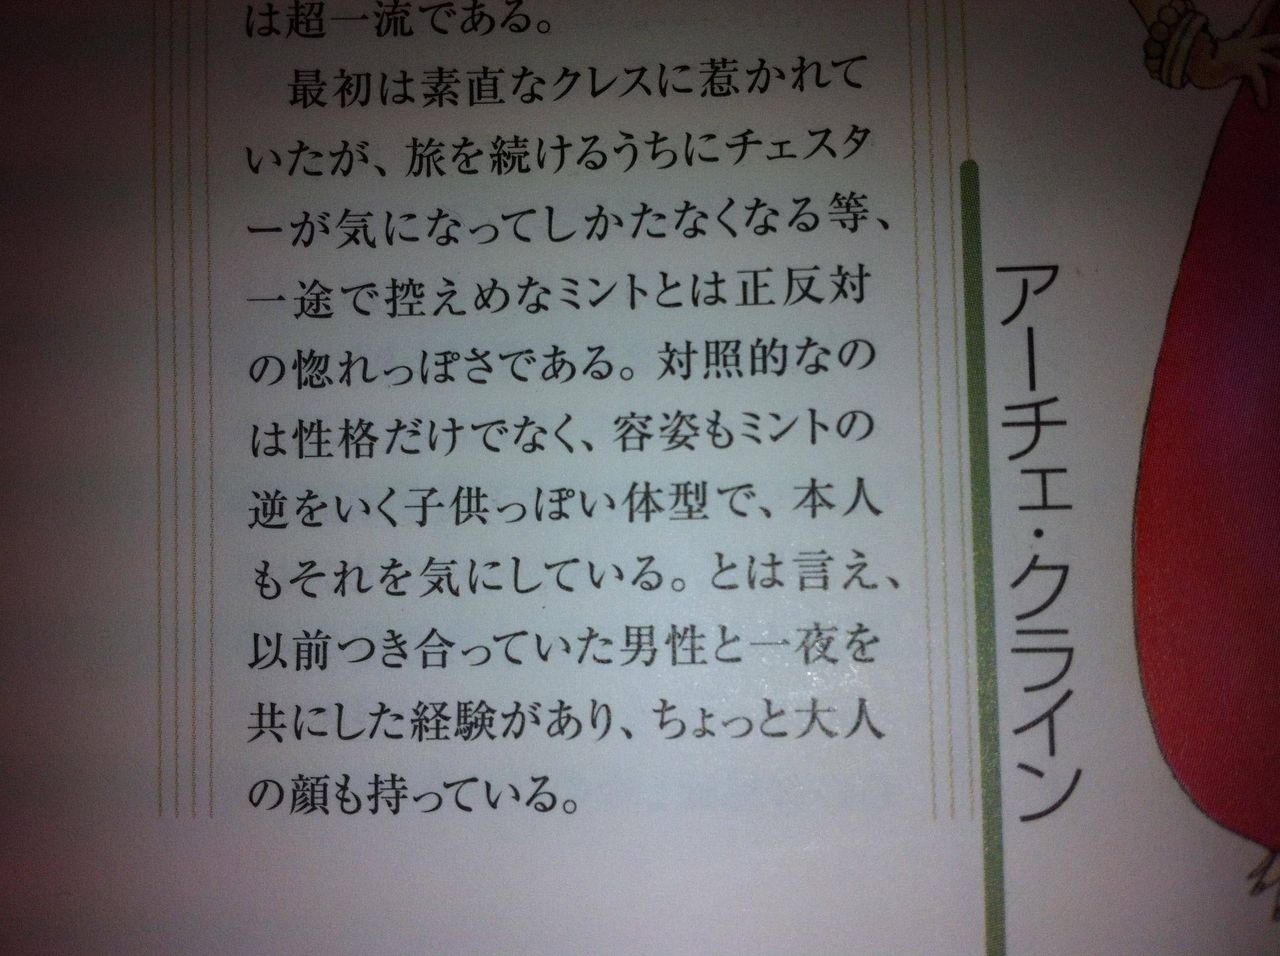 は超一流である。
　最初は素直なクレスに惹かれて
いたが、旅を続けるうちにチェスタ
ーが気になってしかたなくなる等、
一途で控えめなミントとは正反対
の惚れっぽさである。対照的なの
は性格だけでなく、容姿もミントの
逆をいく子供っぽい体型で、本人
もそれを気にしている。とは言え、
以前つき合っていた男性と一夜を
共にした経験があり、ちょっと大人
の顔も持っている。
アーチェ・クライン